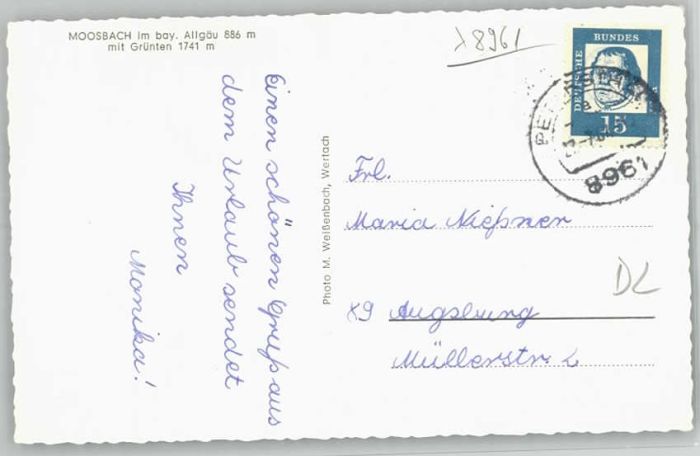 MOOSBACH im bay. Allgäu 886 m
mit Grünten 1741 m
8961
DEUTSCHE
BUNDES
15
8961
Einen schönen Gruß aus
dem Urlaub sendet
Ihnen
Monika!
Photo M. Weißenbach, Wertach
Frl.
Maria Nießner
DL
89 Augsburg
Müllerstr. 2